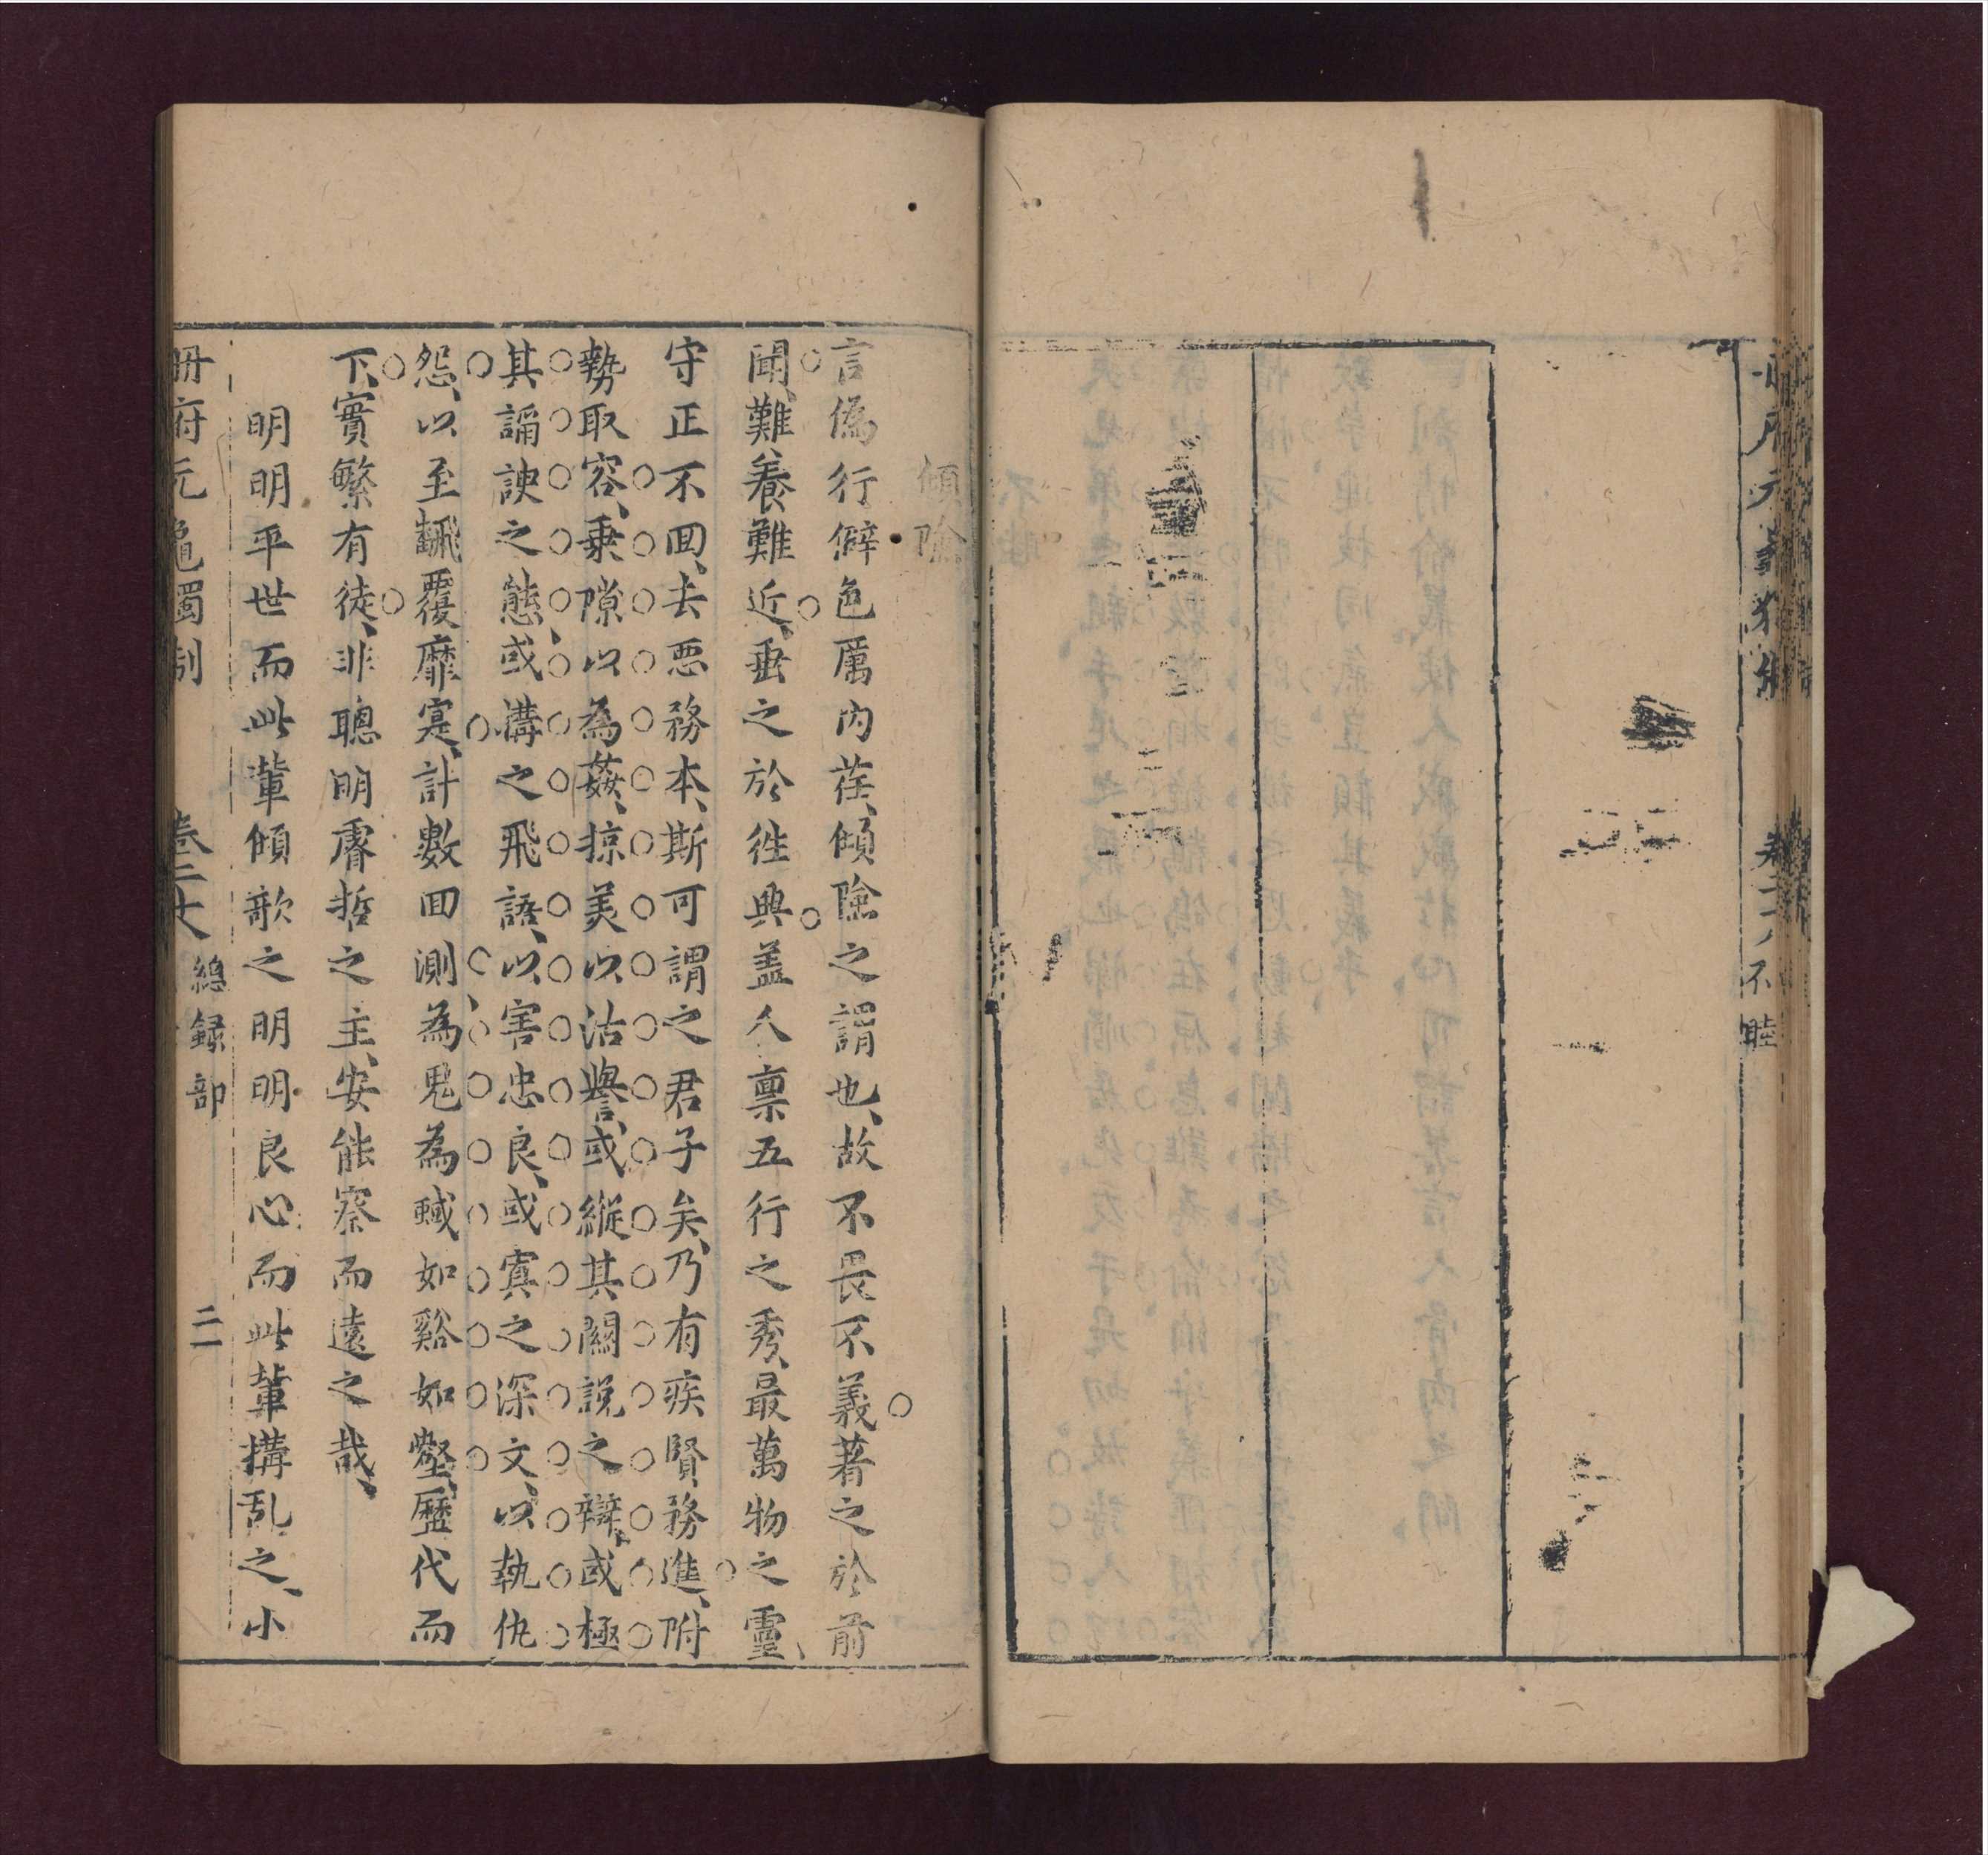 不睦
傾險
言偽行僻色厲內荏、傾險之謂也、故不畏不義著之於前
聞、難養難近、垂之於徃典盖人禀五行之秀、最萬物之靈、
守正不回、去惡務本、斯可謂之君子矣、乃有疾賢務進、附
勢取容、乗隙以為姦、掠美以沽譽、或縱其關說之辯、或極
其諂諛之態、或溝之飛語、以害忠良、或寘之深文、以執仇
怨、以至飜覆靡寔、計數回測、為鬼為蜮如谿如壑、歷代而
下、實繁有徒、非聰明睿哲之主、安能察而遠之哉、
明明平世而此輩傾歒之明明良心而此輩搆乱之、小
冊府元龜獨制
卷二十八
總録部
二一